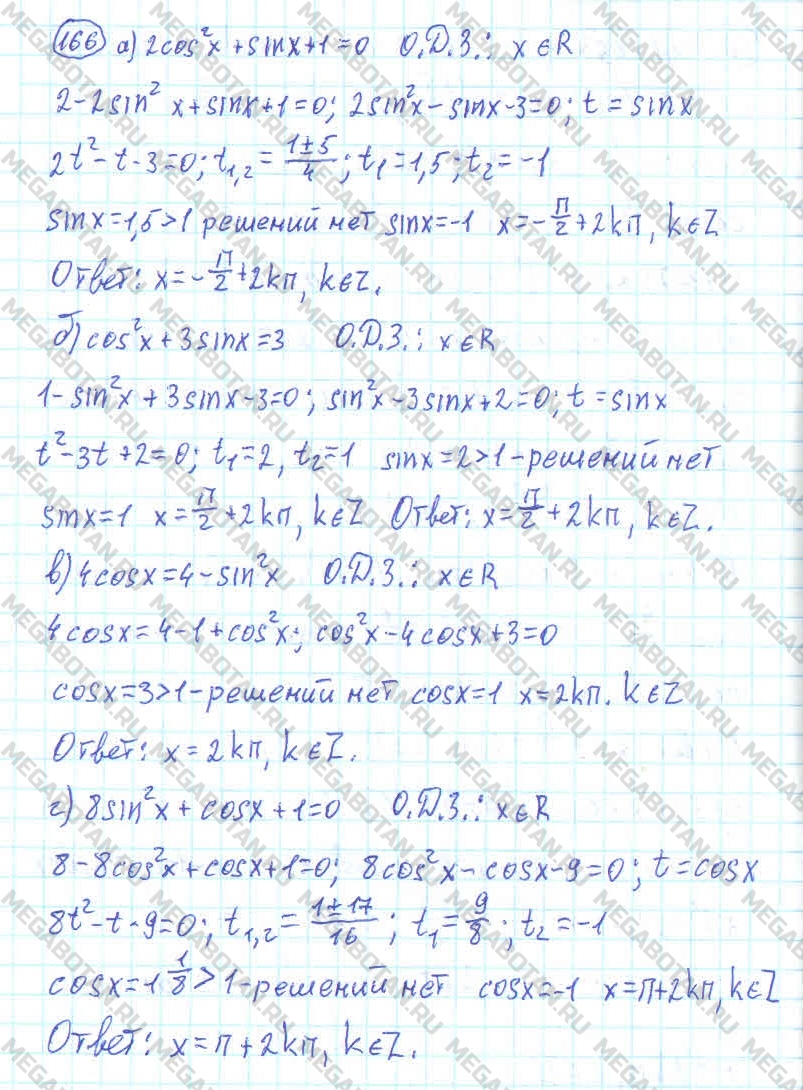 166 а) 2cos²x + sinx + 1 = 0 О.Д.З.: x ∈ R
2 - 2sin² x + sinx + 1 = 0; 2sin²x - sinx - 3 = 0; t = sinx
2t² - t - 3 = 0; t₁,₂ = (1±5)/4; t₁ = 1,5; t₂ = -1
sinx = 1,5 > 1 решений нет sinx = -1 x = -п/2 + 2kп, k ∈ Z
Ответ: x = -п/2 + 2kп, k ∈ Z.
б) cos²x + 3sinx = 3 О.Д.З.: x ∈ R
1 - sin²x + 3sinx - 3 = 0; sin²x - 3sinx + 2 = 0; t = sinx
t² - 3t + 2 = 0; t₁ = 2, t₂ = 1 sinx = 2 > 1 - решений нет
sinx = 1 x = п/2 + 2kп, k ∈ Z Ответ: x = п/2 + 2kп, k ∈ Z.
в) 4cosx = 4 - sin²x О.Д.З.: x ∈ R
4cosx = 4 - 1 + cos²x; cos²x - 4cosx + 3 = 0
cosx = 3 > 1 - решений нет cosx = 1 x = 2kп. k ∈ Z
Ответ: x = 2kп, k ∈ Z.
г) 8sin²x + cosx + 1 = 0 О.Д.З.: x ∈ R
8 - 8cos²x + cosx + 1 = 0; 8cos²x - cosx - 9 = 0; t = cosx
8t² - t - 9 = 0; t₁,₂ = (1±17)/16; t₁ = 9/8; t₂ = -1
cosx = 1 1/8 > 1 - решений нет cosx = -1 x = п + 2kп, k ∈ Z
Ответ: x = п + 2kп, k ∈ Z.
MEGABOTAN.RU